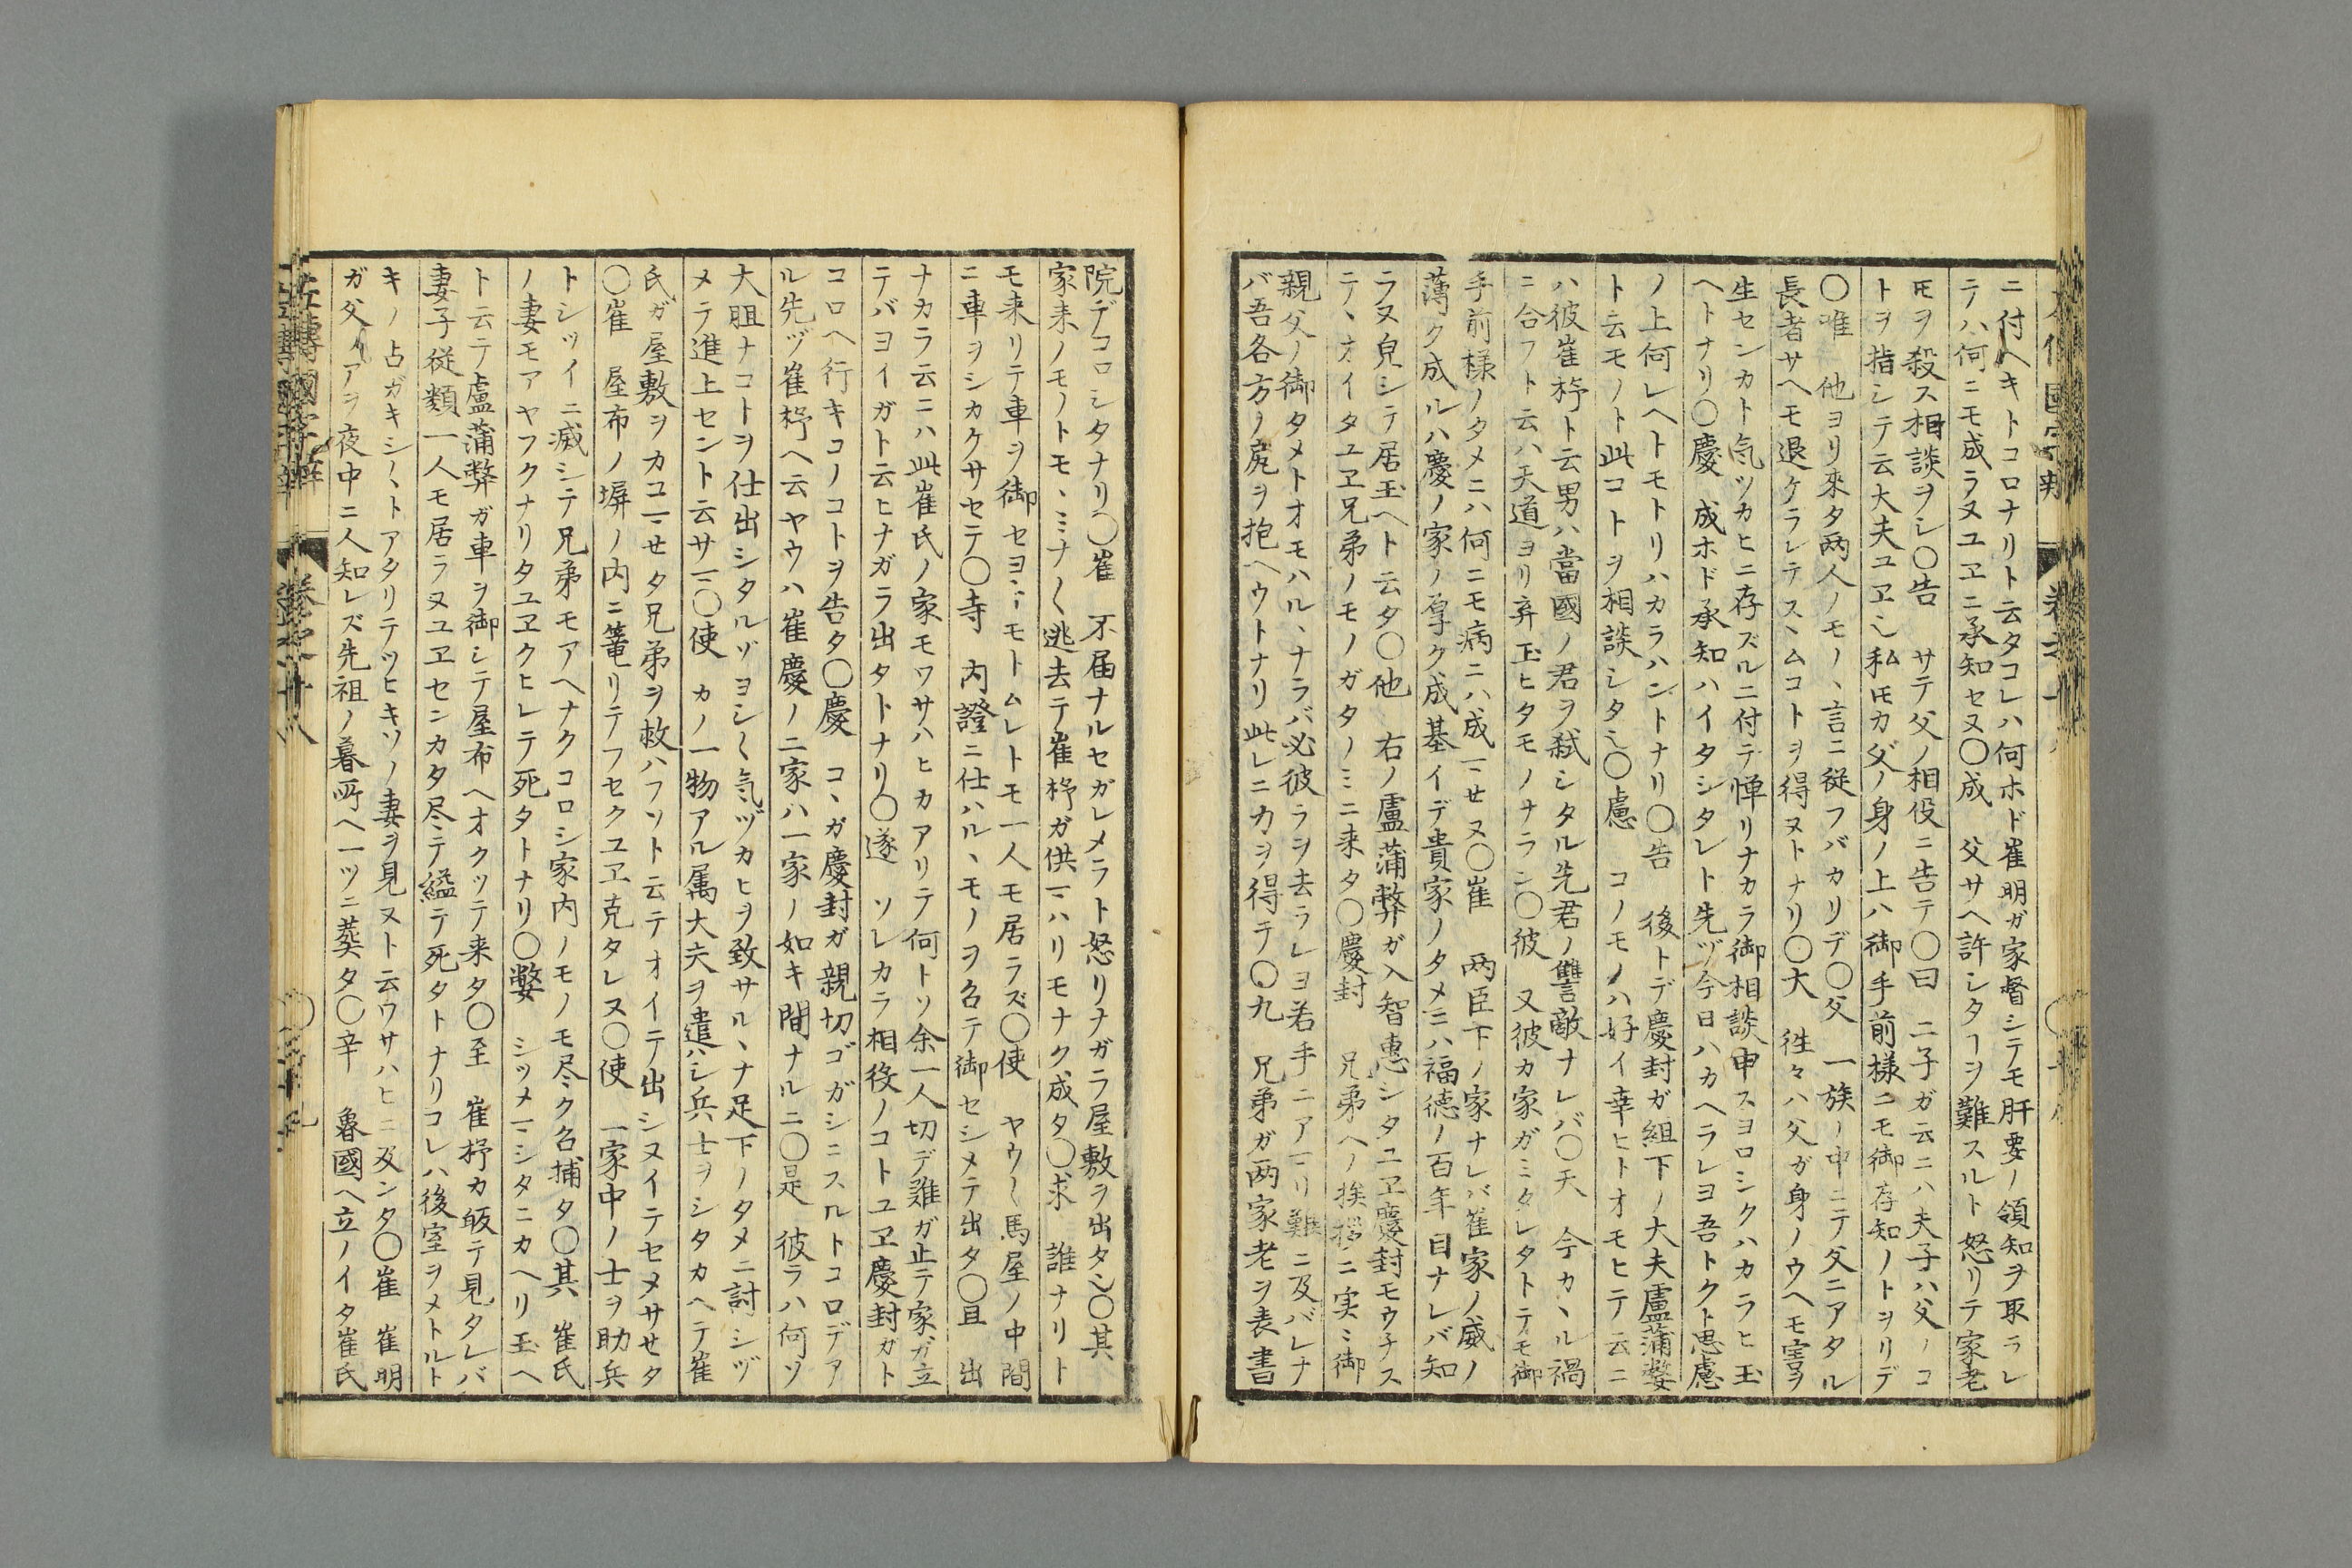 ニ付ヘキトコロナリト云タコレハ何ホド崔明ガ家督シテモ肝要ノ領知ヲ取ラレ
テハ何ニモ成ラヌユヱニ承知セヌ〇成 父サヘ許シタヿヲ難スルト怒リテ家老
𪜈ヲ殺ス相談ヲシ〇告 サテ父ノ相役ニ告テ〇曰 二子ガ云ニハ夫子ハ父ノコ
トヲ指シテ云大夫ユヱ乄私𪜈カ父ノ身ノ上ハ御手前様ニモ御存知ノトヲリデ
〇唯 他ヨリ來タ両人ノモノヽ言ニ従フバカリデ〇父 一族ノ中ニテ父ニアタル
長者サヘモ退ケラレテスヽムコトヲ得ヌトナリ〇大 徃々ハ父ガ身ノウヘモ害ヲ
生センカト気ツカヒニ存ズルニ付テ惮リナカラ御相談申スヨロシクハカラヒ玉
ヘトナリ〇慶 成ホド承知ハイタシタレト先ヅ今日ハカヘラレヨ吾トクト思慮
ノ上何レヘトモトリハカラハントナリ〇告 後トデ慶封ガ組下ノ大夫盧蒲嫳
ト云モノト此コトヲ相談シタ乄〇慮 コノモノハ好イ幸ヒトオモヒテ云ニ
ハ彼崔杼ト云男ハ當國ノ君ヲ弑シタル先君ノ讐敵ナレバ〇天 今カヽル禍
ニ合フト云ハ天道ヨリ弃玉ヒタモノナラン〇彼 又彼カ家ガミタレタトテモ御
手前様ノタメニハ何ニモ病ニハ成マセヌ〇崔 両臣下ノ家ナレバ崔家ノ威ノ
薄ク成ルハ慶ノ家ノ厚ク成基イデ貴家ノタメニハ福徳ノ百年目ナレバ知
ラヌ皃シテ居玉ヘト云タ〇他 右ノ盧蒲弊ガ入智恵シタユヱ慶封モウチス
テヽオイタユヱ兄弟ノモノガタノミニ来タ〇慶封 兄弟ヘノ挨拶ニ実ミ御
親父ノ御タメトオモハルヽナラバ必彼ラヲ去ラレヨ若手ニアマリ難ニ及バレナ
バ吾各方ノ尻ヲ抱ヘウトナリ此レニ力ヲ得テ〇九 兄弟ガ両家老ヲ表書
院デコロシタナリ〇崔 不届ナルセガレメラト怒リナガラ屋敷ヲ出タ乄〇其
家来ノモノトモヽミナ〱逃去テ崔杼ガ供マハリモナク成タ〇求 誰ナリト
モ来リテ車ヲ御セヨトモトムレトモ一人モ居ラズ〇使 ヤウ〱馬屋ノ中間
ニ車ヲシカケサセテ〇寺 内證ニ仕ハルヽモノヲ召テ御セシメテ出タ〇且 出
ナカラ云ニハ此崔氏ノ家モワサハヒカアリテ何トソ余一人切デ難ガ止テ家ガ立
テバヨイガト云ヒナガラ出タトナリ〇遂 ソレカラ相役ノコトユヱ慶封ガト
コロヘ行キコノコトヲ告タ〇慶 コヽガ慶封ガ親切ゴガシニスルトコロデア
ル先ヅ崔杼ヘ云ヤウハ崔慶ノ二家ハ一家ノ如キ間ナルニ〇是 彼ラハ何ソ
大胆ナコトヲ仕出シタルゾヨシ〱気ヅカヒヲ致サルヽナ足下ノタメニ討シヅ
メテ進上セント云サマ〇使 カノ一物アル属大夫ヲ遣ハシ兵士ヲシタカヘテ崔
氏ガ屋敷ヲカコマセタ兄弟ヲ救ハフソト云テオイテ出シヌイテセメサセタ
〇崔 屋布ノ塀ノ内ニ篭リテフセクユヱ克タレヌ〇使 一家中ノ士ヲ助兵
トシツイニ滅シテ兄弟モアヘナクコロシ家内ノモノモ尽ク召捕タ〇其 崔氏
ノ妻モアヤフクナリタユヱクヒレテ死タトナリ〇嫳 シツメマシタニカヘリ玉ヘ
ト云テ盧蒲弊ガ車ヲ御シテ屋布ヘオクツテ来タ〇至 崔杼カ皈テ見タレバ
妻子従類一人モ居ラヌユヱセンカタ尽テ縊テ死タトナリコレハ後室ヲメトルト
キノ占ガキシ〱トアタリテツヒキソノ妻ヲ見ヌト云ワサハヒニ及ンタ〇崔 崔明
ガ父 アヲ夜中ニ人知レズ先祖ノ暮所ヘ一ツニ葬タ〇辛 魯國ヘ立ノイタ崔氏
左傳國字辯 巻之十八